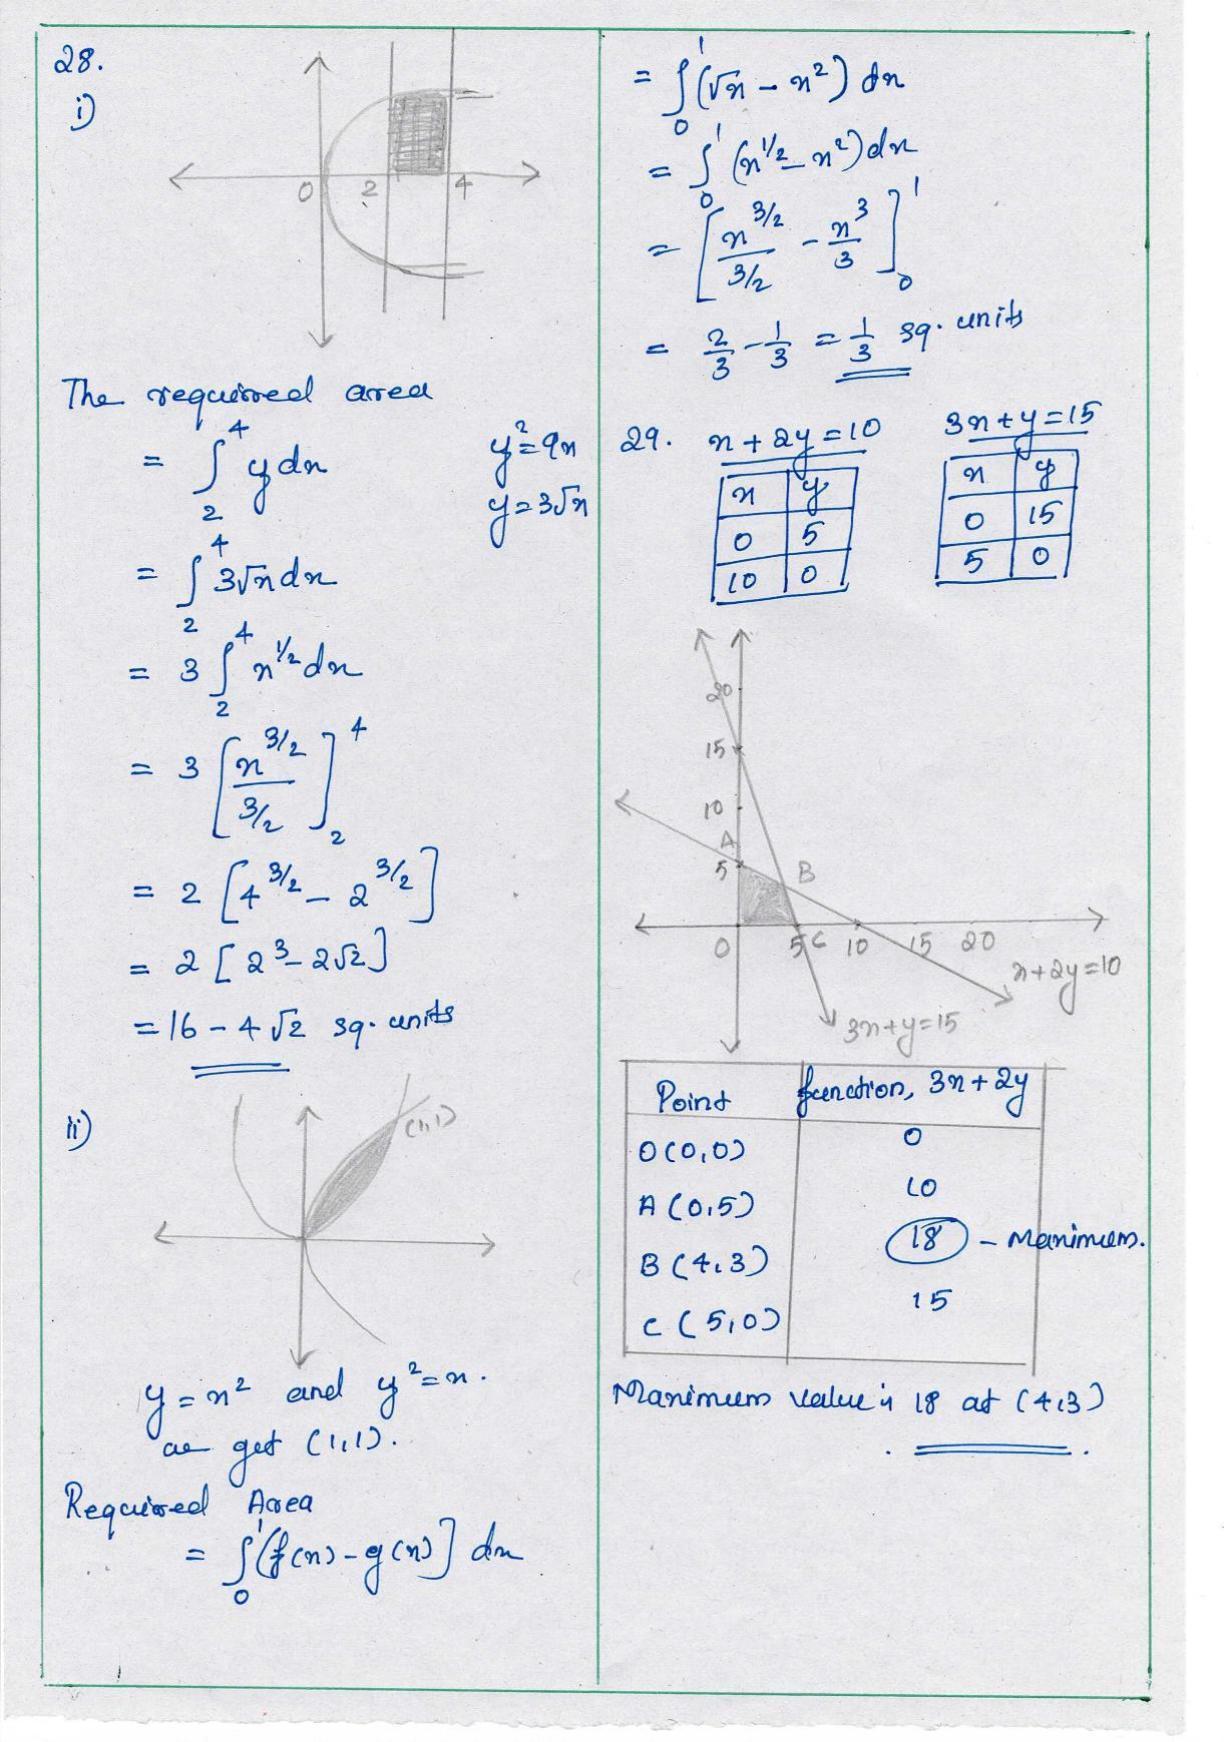 28.
i)
0 2 4
The required area
= ∫₂⁴ y dx
y² = 9x
y = 3√x
= ∫₂⁴ 3√x dx
= 3 ∫₂⁴ x^(1/2) dx
= 3 [x^(3/2) / (3/2)]₂⁴
= 2 [4^(3/2) - 2^(3/2)]
= 2 [2³ - 2√2]
= 16 - 4√2 sq. units
ii)
(1,1)
y = x² and y² = x.
we get (1,1).
Required Area
= ∫₀¹ (f(x) - g(x)] dx
= ∫₀¹ (√x - x²) dx
= ∫₀¹ (x^(1/2) - x²) dx
= [x^(3/2) / (3/2) - x³/3]₀¹
= 2/3 - 1/3 = 1/3 sq. units
29. x + 2y = 10
x y
0 5
10 0
3x + y = 15
x y
0 15
5 0
20
15
10
A
5 B
0 5 C 10 15 20
x + 2y = 10
3x + y = 15
Point function, 3x + 2y
O (0,0) 0
A (0,5) 10
B (4,3) 18 - Maximum.
C (5,0) 15
Maximum value is 18 at (4,3)